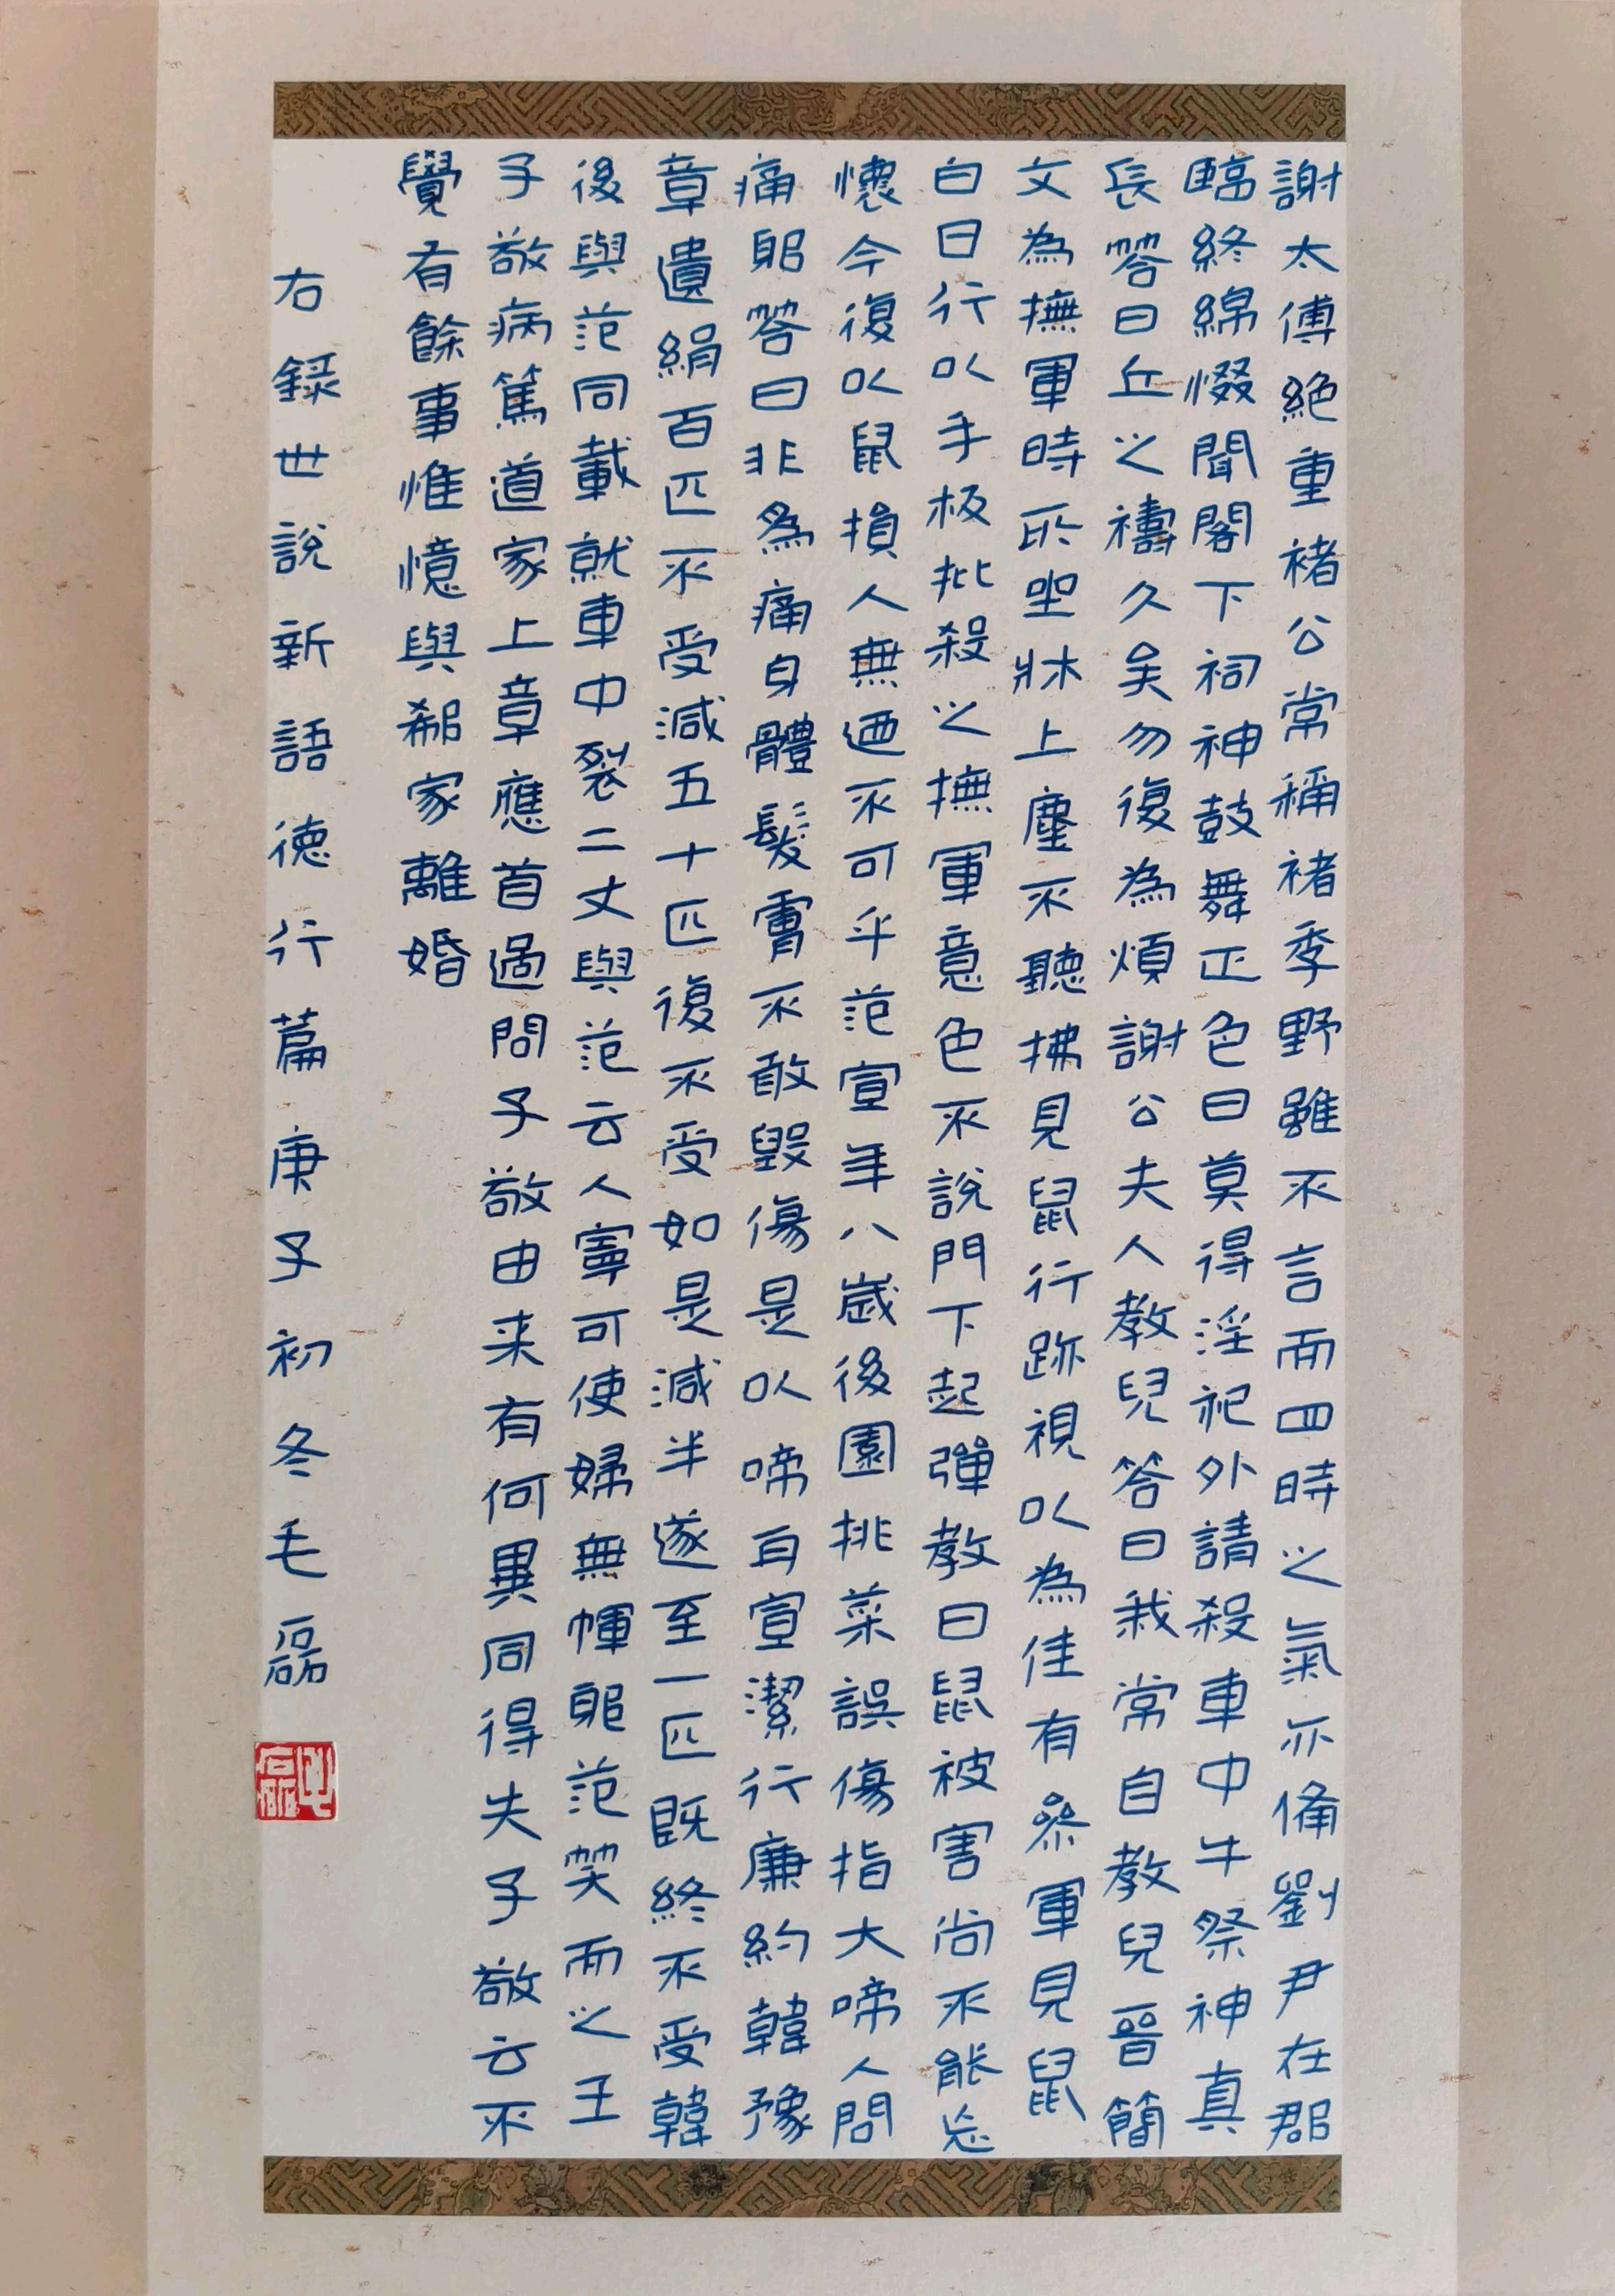 謝太傅絕重褚公常稱褚季野雖不言而四時之氣亦備劉尹在郡
臨終綿惙聞閣下祠神鼓舞正色曰莫得淫祀外請殺車中牛祭神真
長答曰丘之禱久矣勿復為煩謝公夫人教兒答曰我常自教兒晉簡
文為撫軍時所坐牀上塵不聽拂見鼠行跡視以為佳有參軍見鼠
白日行以手板批殺之撫軍意色不說門下起彈教曰鼠被害尚不能忘
懷今復以鼠損人無迺不可乎范宣年八歲後園挑菜誤傷指大啼人問
痛耶答曰非為痛身體髮膚不敢毀傷是以啼耳宣潔行廉約韓豫
章遺絹百匹不受減五十匹復不受如是減半遂至一匹既終不受韓
後與范同載就車中裂二丈與范云人寧可使婦無㡓耶范笑而之王
子敬病篤道家上章應首過問子敬由来有何異同得失子敬云不
覺有餘事惟憶與郗家離婚
右錄世說新語德行篇庚子初冬毛磊